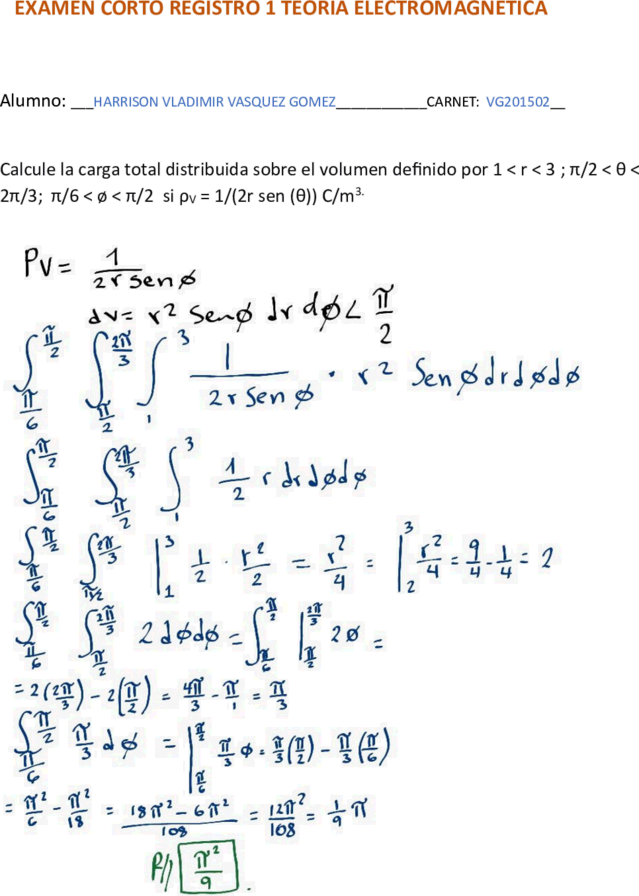 EXAMEN CORTO REGISTRO 1 TEORIA ELECTROMAGNETICA
Alumno: ___HARRISON VLADIMIR VASQUEZ GOMEZ____________CARNET: VG201502__
Calcule la carga total distribuida sobre el volumen definido por 1 < r < 3 ; π/2 < θ <
2π/3; π/6 < ø < π/2 si ρV = 1/(2r sen (θ)) C/m³·
Pv = 1/(2r sen ø)
dv = r² Senø dr dø < π/2
∫_{π/6}^{π/2} ∫_{π/2}^{2π/3} ∫_1^3 1/(2r Sen ø) · r² Sen ø dr dø dø
∫_{π/6}^{π/2} ∫_{π/2}^{2π/3} ∫_1^3 1/2 r dr dø dø
∫_{π/6}^{π/2} ∫_{π/2}^{2π/3} |_1^3 1/2 · r²/2 = r²/4 = |_2^3 r²/4 = 9/4 - 1/4 = 2
∫_{π/6}^{π/2} ∫_{π/2}^{2π/3} 2 dø dø = ∫_{π/6}^{π/2} |_{π/2}^{2π/3} 2ø =
= 2(2π/3) - 2(π/2) = 4π/3 - π/1 = π/3
∫_{π/6}^{π/2} π/3 dø = |_{π/6}^{π/2} π/3 ø = π/3 (π/2) - π/3 (π/6)
= π²/6 - π²/18 = (18π² - 6π²)/108 = 12π²/108 = 1/9 π
R// π²/9 .